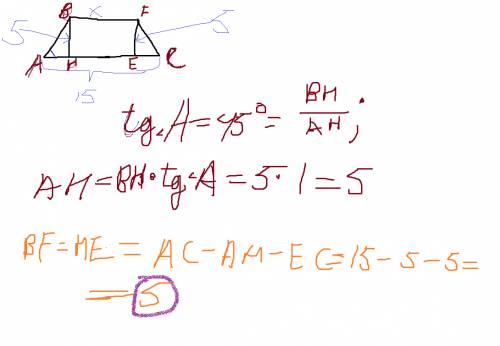 B x F
5 5
A H E C
15
tg∠A=45°=BH/AH;
AH=BH·tg∠A=5·1=5
BF=HE=AC-AH-EC=15-5-5=
=5